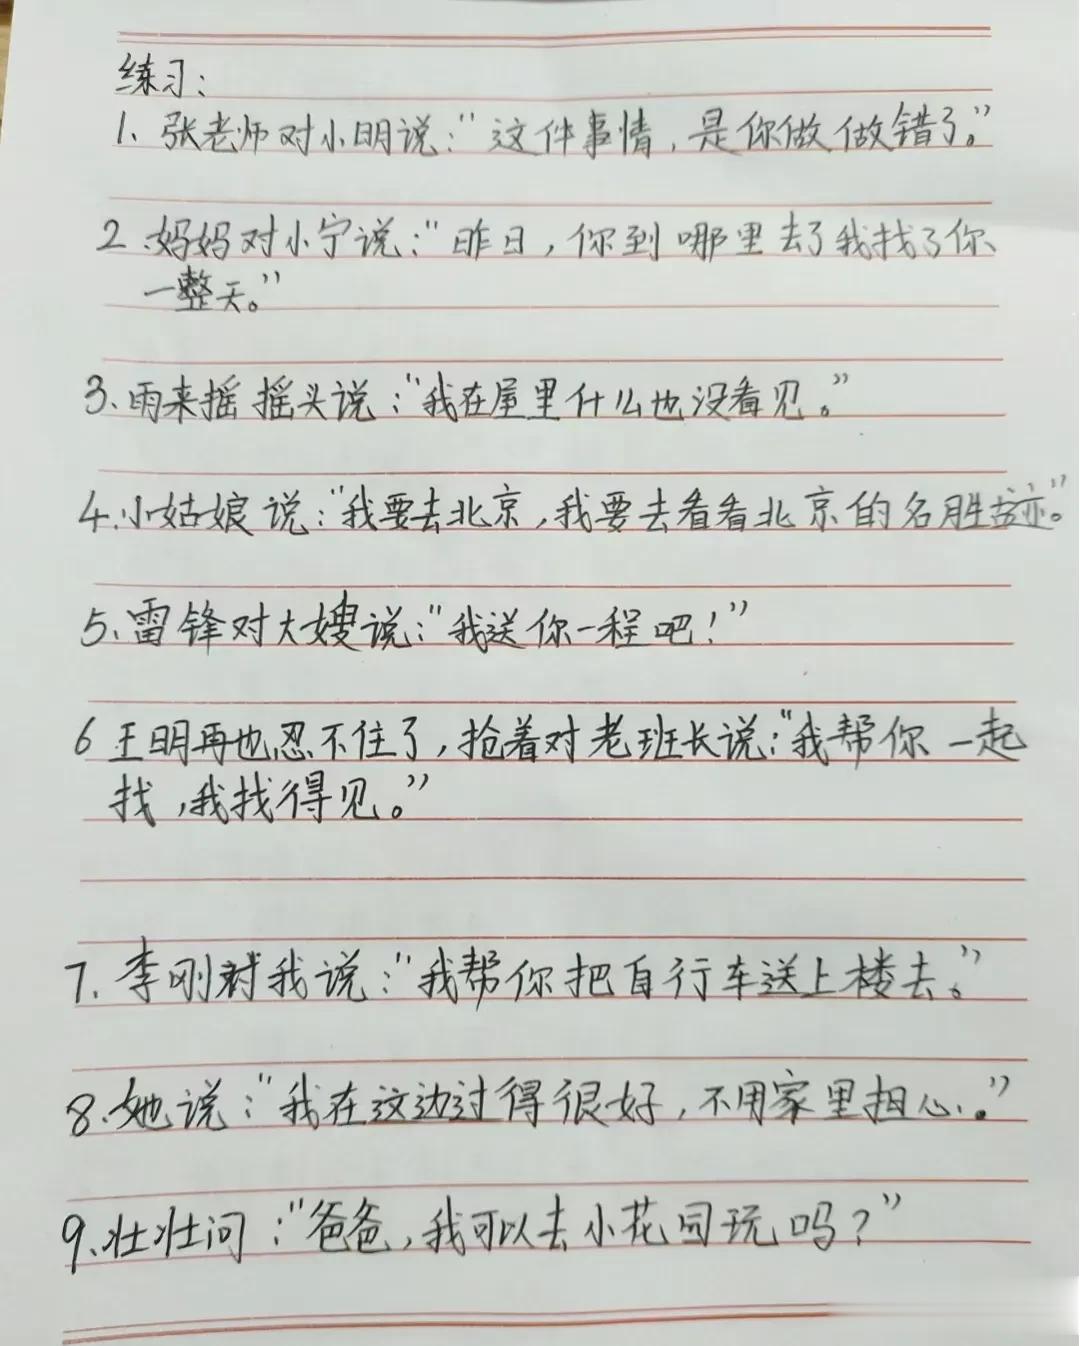 练习：
1、张老师对小明说：“这件事情，是你做做错了。”
2、妈妈对小宁说：“昨日，你到哪里去了我找了你
一整天。”
3、雨来摇摇头说：“我在屋里什么也没看见。”
4、小姑娘说：“我要去北京，我要去看看北京的名胜古迹。”
5、雷锋对大嫂说：“我送你一程吧！”
6 王明再也忍不住了，抢着对老班长说：“我帮你一起
找，我找得见。”
7、李刚对我说：“我帮你把自行车送上楼去。”
8、她说：“我在这边过得很好，不用家里担心。”
9、壮壮问：“爸爸，我可以去小花园玩吗？”